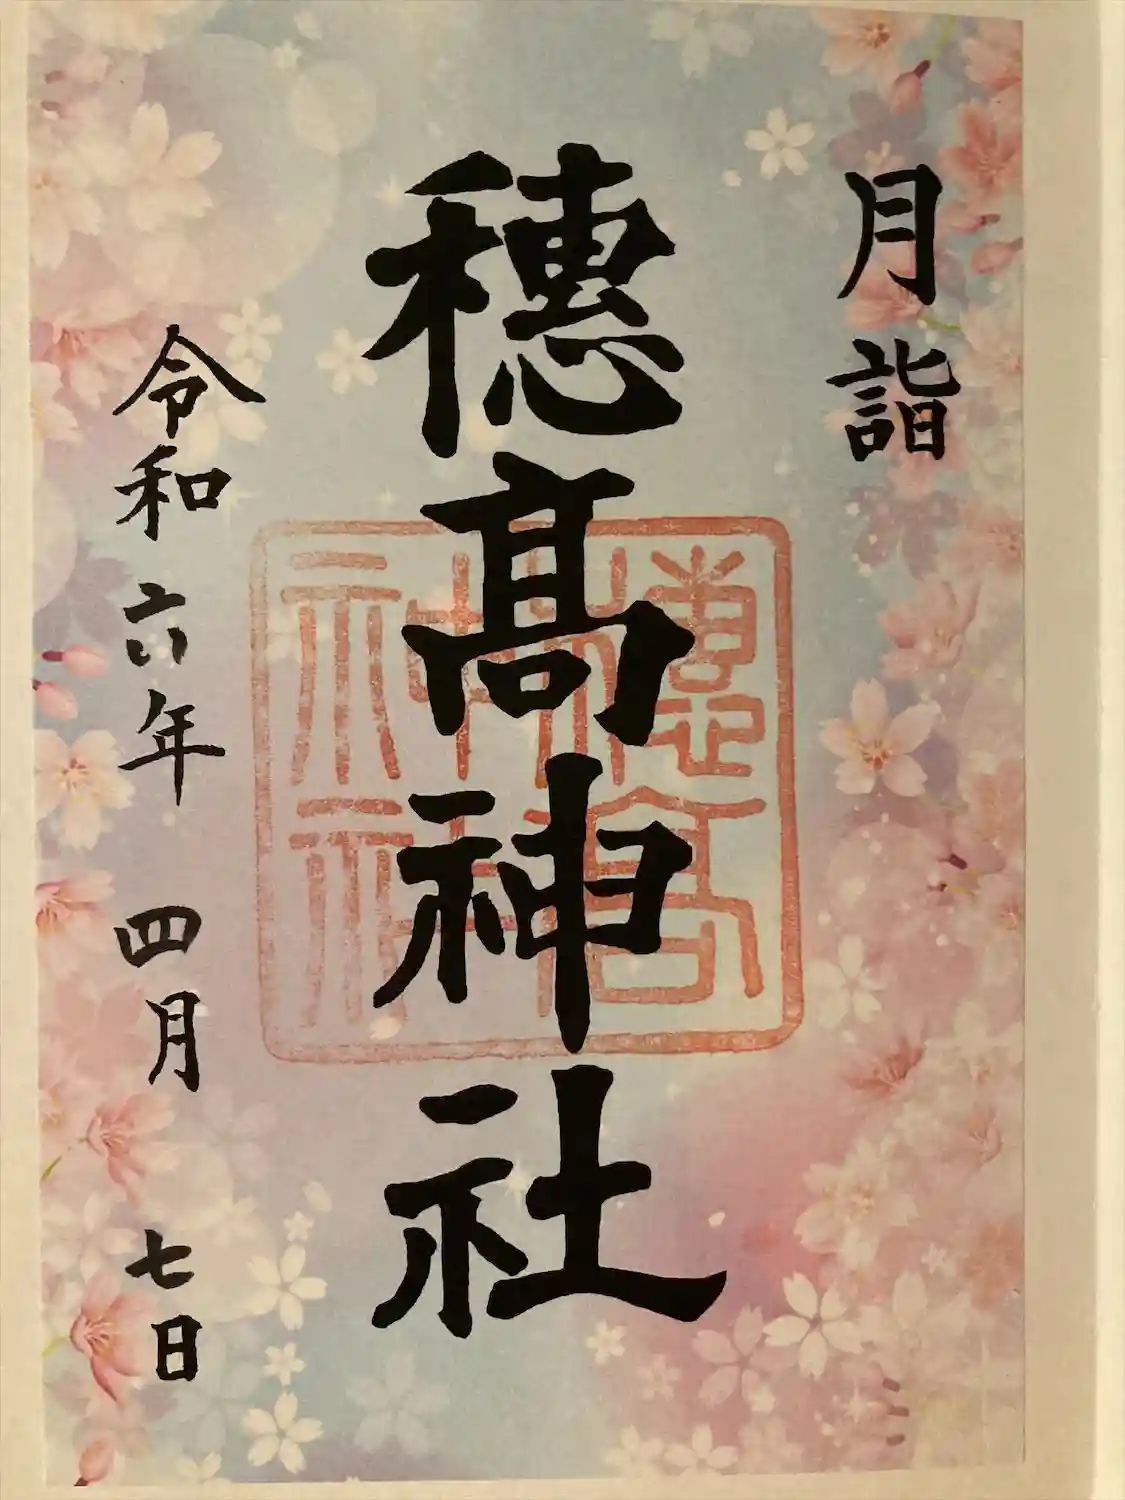 月詣
穂髙神社
穂高神社
令和六年四月七日